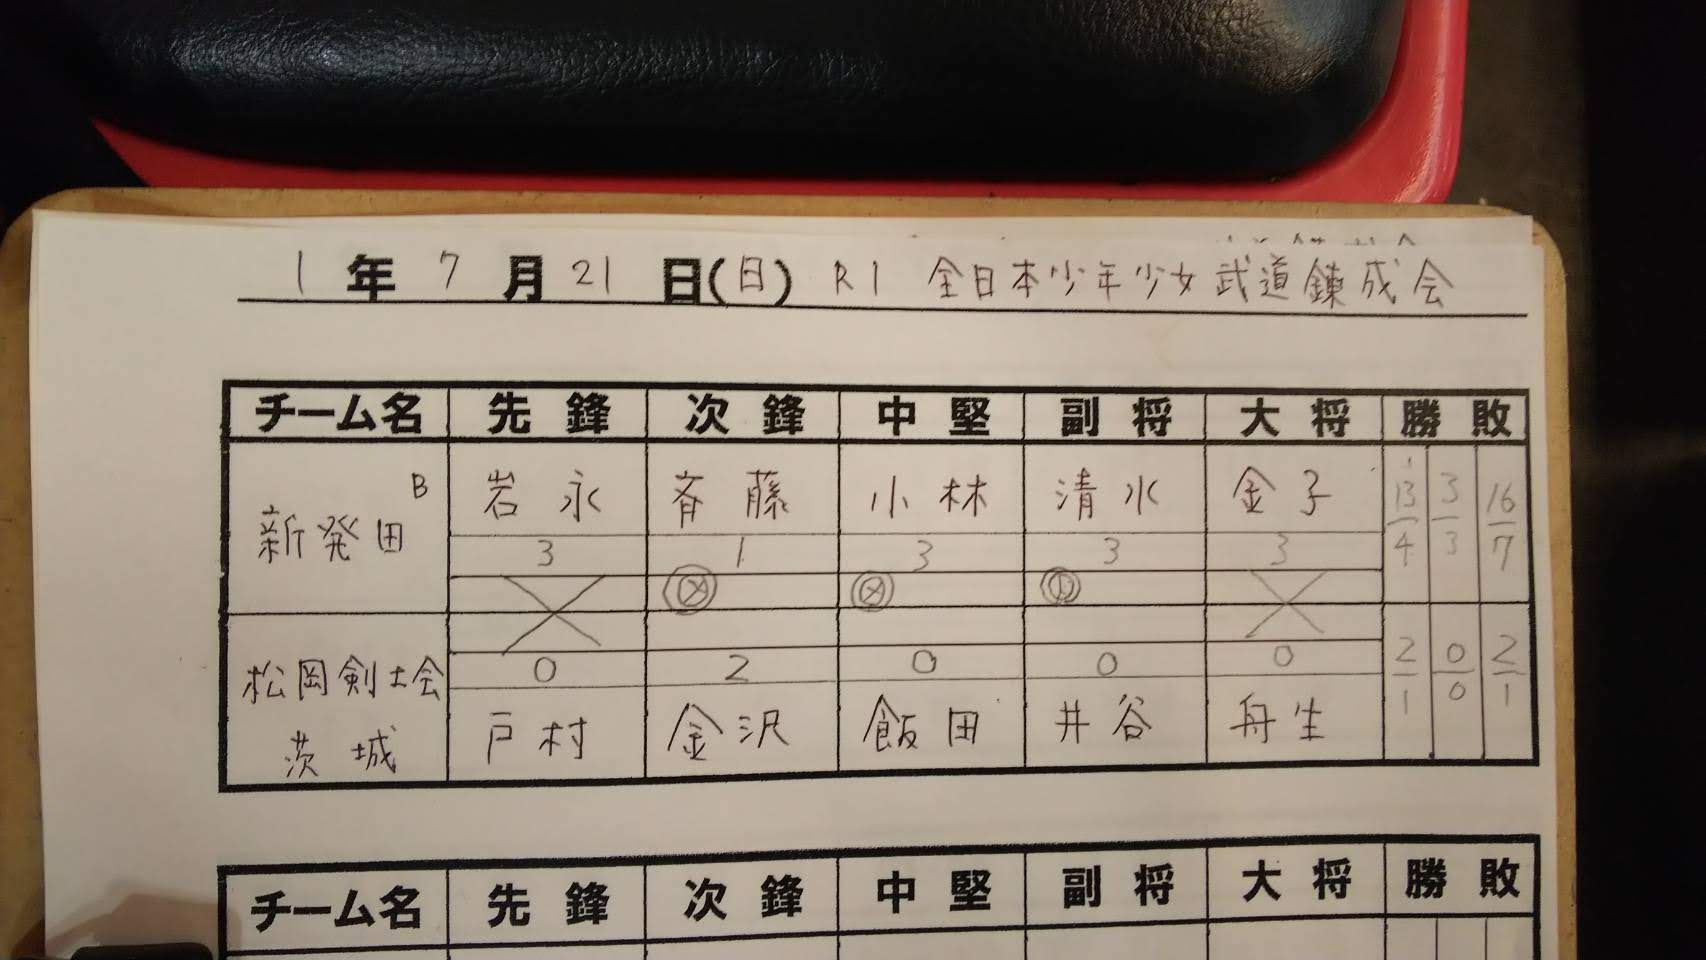 1年 7月 21日(日) R1 全日本少年少女武道錬成会
チーム名 先鋒 次鋒 中堅 副将 大将 勝敗
新発田 B 岩永 斉藤 小林 清水 金子 13/4 3/3 16/7
3 1 3 3 3
0 2 0 0 0
松岡剣士会 戸村 金沢 飯田 井谷 舟生 2/1 0/0 2/1
茨城
チーム名 先鋒 次鋒 中堅 副将 大将 勝敗